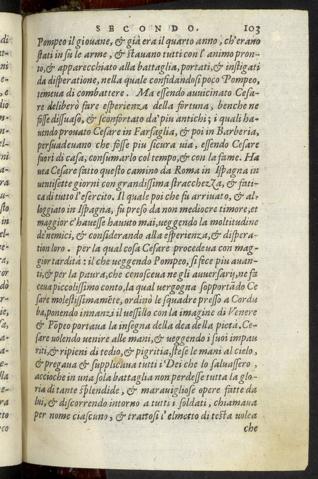 SECONDO. 103
Pompeo il giouane, & già era il quarto anno, ch'erano
stati in sù le arme, & stauano tutti con l'animo pron-
to, & apparecchiato alla battaglia, portati, & instigati
da disperatione, nella quale confidandosi poco Pompeo,
temeua di combattere. Ma essendo auuicinato Cesa-
re deliberò fare esperienza della fortuna, benche ne
fosse dissuaso, & sconfortato da' più antichi; i quali ha-
uendo prouato Cesare in Farsaglia, & poi in Barberia,
persuadeuano che fosse piu sicura uia, essendo Cesare
fuori di casa, consumarlo col tempo, & con la fame. Ha
uea Cesare fatto questo camino da Roma in Ispagna in
uentisette giorni con grandissima stracchezza, & fati-
ca di tutto l'esercito. Il quale poi che fu arriuato, & al-
loggiato in Ispagna, fu preso da non mediocre timore, et
maggior c'hauesse hauuto mai, ueggendo la moltitudine
de'nemici, & considerando alla esperienza, & dispera-
tion loro. per la qual cosa Cesare procedeua con mag-
gior tardità: il che ueggendo Pompeo, si fece piu auan-
ti, & per la paura, che conosceua negli auuersarij, ne fa
ceua piccolissimo conto, la qual vergogna sopportādo Ce
sare molestissimamēte, ordinò le squadre presso a Cordu
ba, ponendo innanzi il uessillo con la imagine di Venere
& Pōpeo portaua la insegna della dea della pietà. Ce-
sare uolendo uenire alle mani, & ueggendo i suoi impau
riti, & ripieni di tedio, & pigritia, stese le mani al cielo,
& pregaua & supplicaua tutti i Dei che lo saluassero,
accioche in una sola battaglia non perdesse tutta la glo-
ria di tante splendide, & marauigliose opere fatte da
lui, & discorrendo intorno a tutti i soldati, chiamaua
per nome ciascuno, & trattosi l'elmetto di testa uolea
che